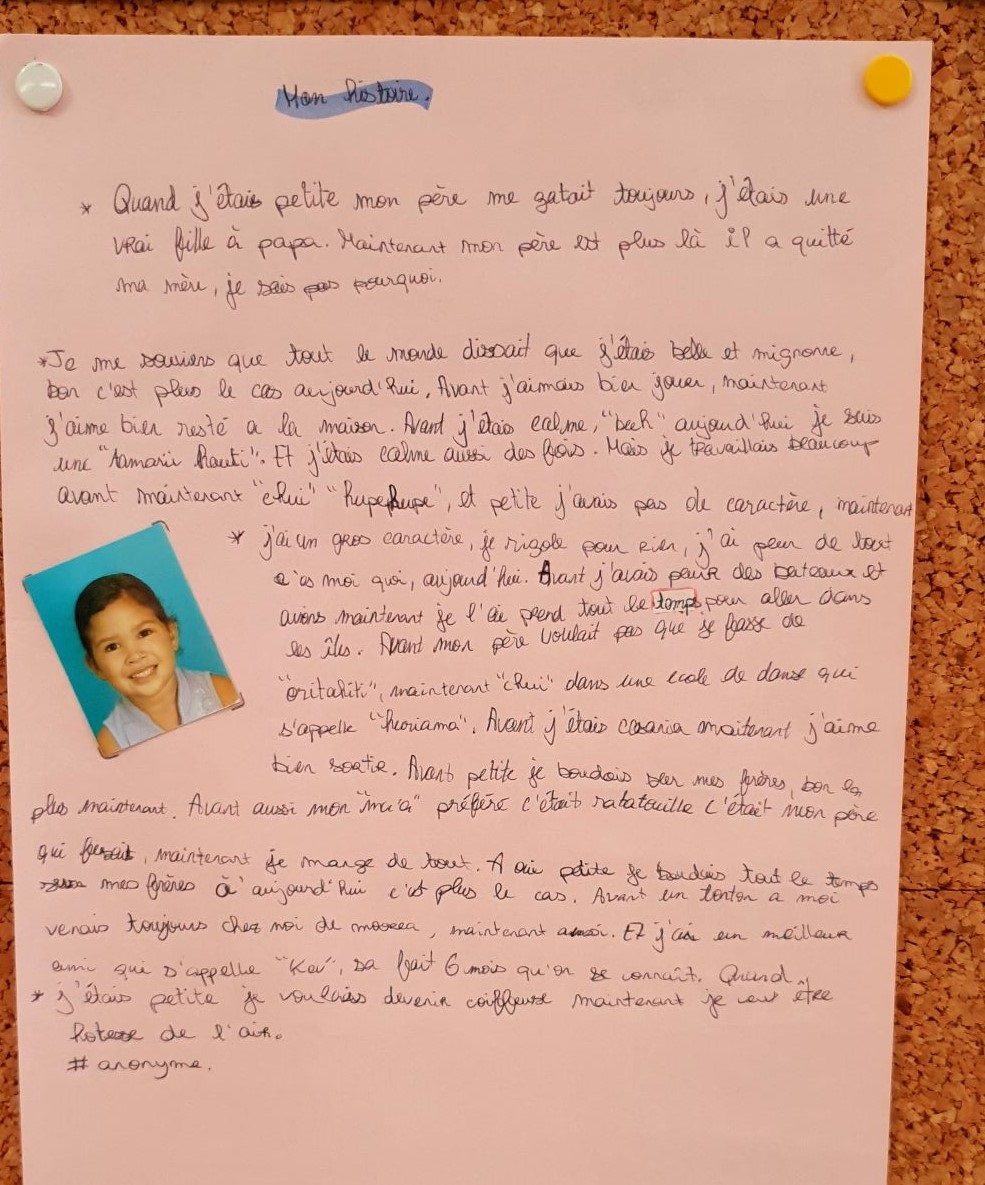 Mon histoire.
* Quand j'étais petite mon père me gatait toujours, j'étais une
vrai fille à papa. Maintenant mon père est plus là il a quitté
ma mère, je sais pas pourquoi.
* Je me souviens que tout le monde dissait que j'étais belle et mignonne,
bon c'est plus le cas aujourd'hui. Avant j'aimais bien jouer, maintenant
j'aime bien resté a la maison. Avant j'étais calme, "beeh" aujourd'hui je suis
une "tamarii hauti". Et j'étais calme aussi des fois. Mais je travaillais beaucoup
avant maintenant "ehui" "hupehupe", et petite j'avais pas de caractère, maintenant
* j'ai un gros caractère, je rigole pour rien, j'ai peur de tout
c'es moi quoi, aujourd'hui. Avant j'avais peur des bateaux et
avions maintenant je l'ai prend tout le temps pour aller dans
les îles. Avant mon père voulait pas que je fasse de
"oritahiti", maintenant "ehui" dans une ecole de danse qui
s'appelle "heoriama". Avant j'étais casania maitenant j'aime
bien sortir. Avant petite je boudais sur mes frères, bon
plus maintenant. Avant aussi mon "ma'a" préféré c'était ratatouille c'était mon père
qui fesait, maintenant je mange de tout. A oui petite je boudais tout le temps
mes frères à aujourd'hui c'est plus le cas. Avant un tonton a moi
venais toujours chez moi de moorea, maintenant aussi. Et j'ai un meilleur
ami qui s'appelle "Kev", sa fait 6 mois qu'on se connaît. Quand
* j'étais petite je voulais devenir coiffeuse maintenant je veut être
hotesse de l'air.
# anonyme.